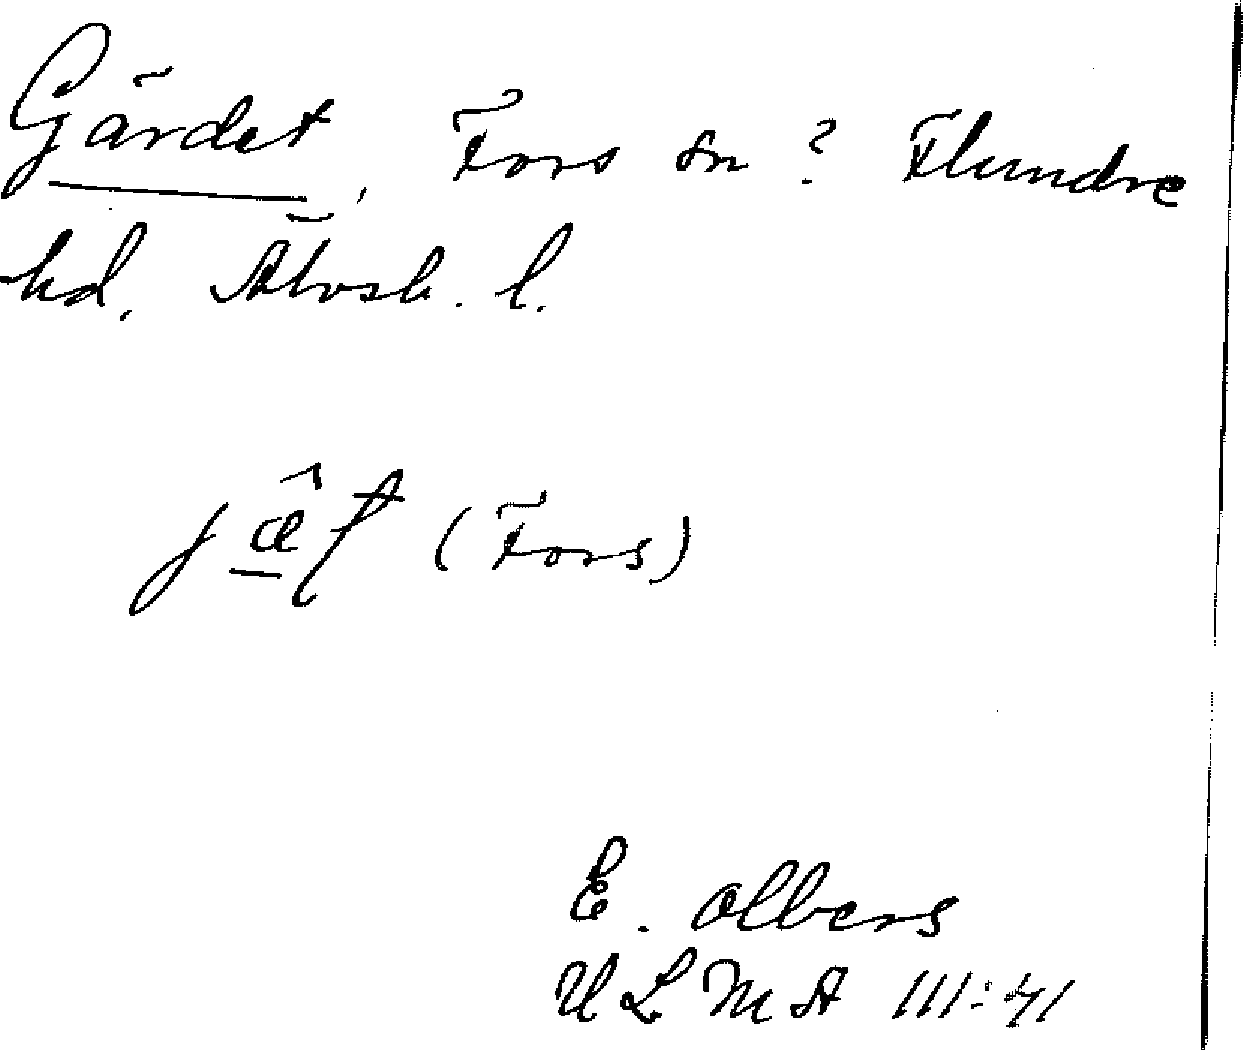 Gärdet, Fors sn? Flundre
hd. Älvsb. l.
(Fors)
E. Olbers
ULMA III:41